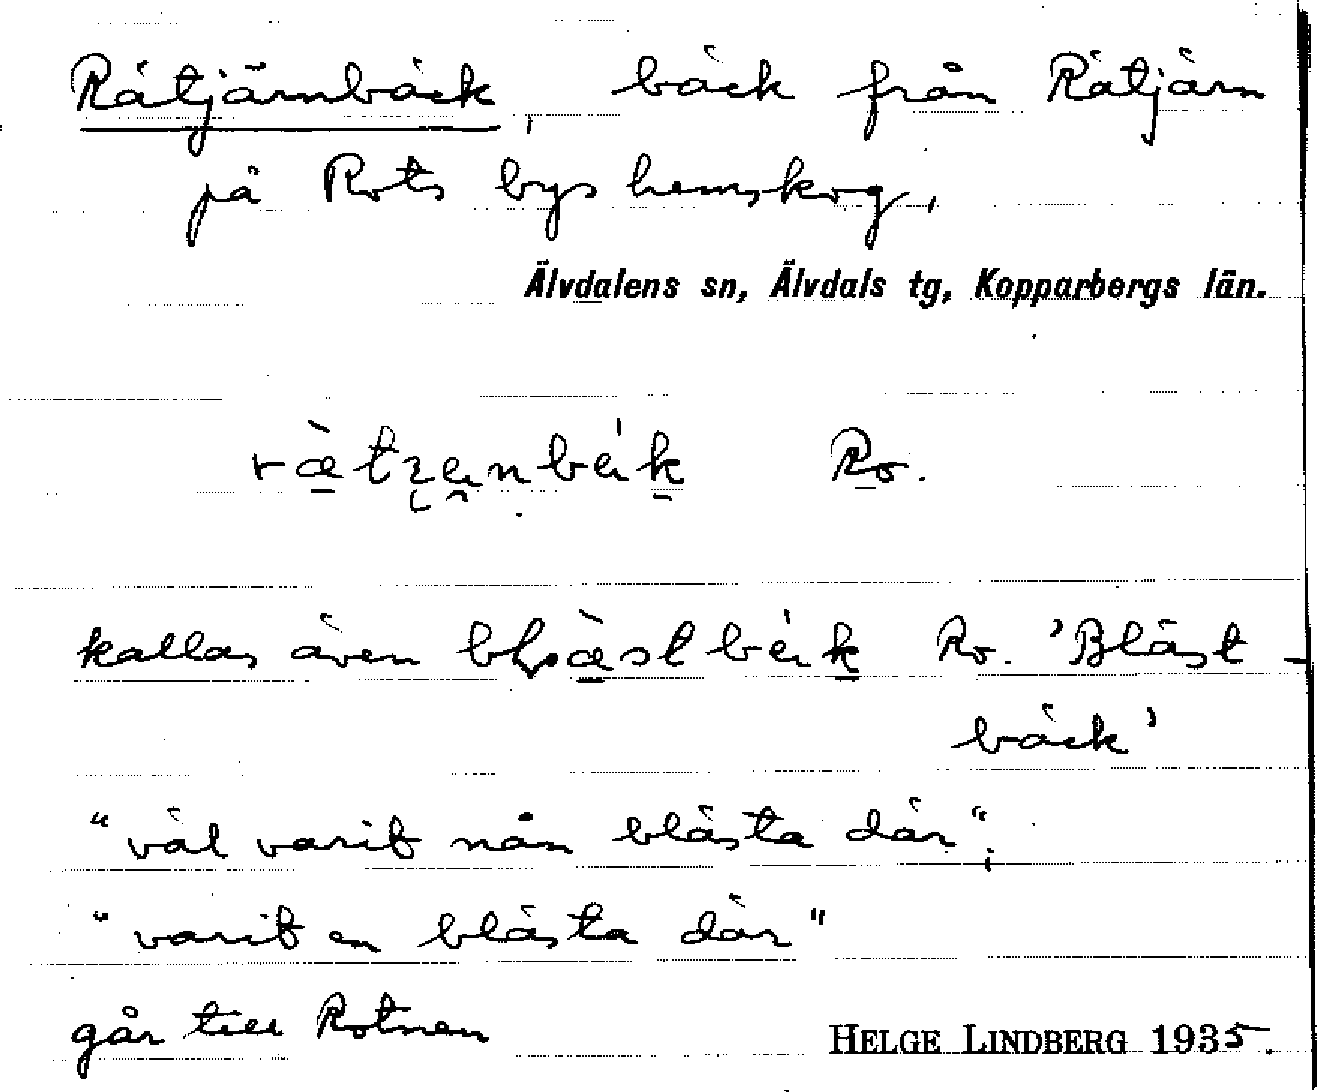 Råtjärnbäck, bäck från Råtjärn
på Rots bys hemskog,
Älvdalens sn, Älvdals tg, Kopparbergs län.
Ro.
kallas även Ro. 'Bläst-
bäck'
"väl varit nån blästa där";
"varit en blästa där"
går till Rotnen
HELGE LINDBERG 1935.